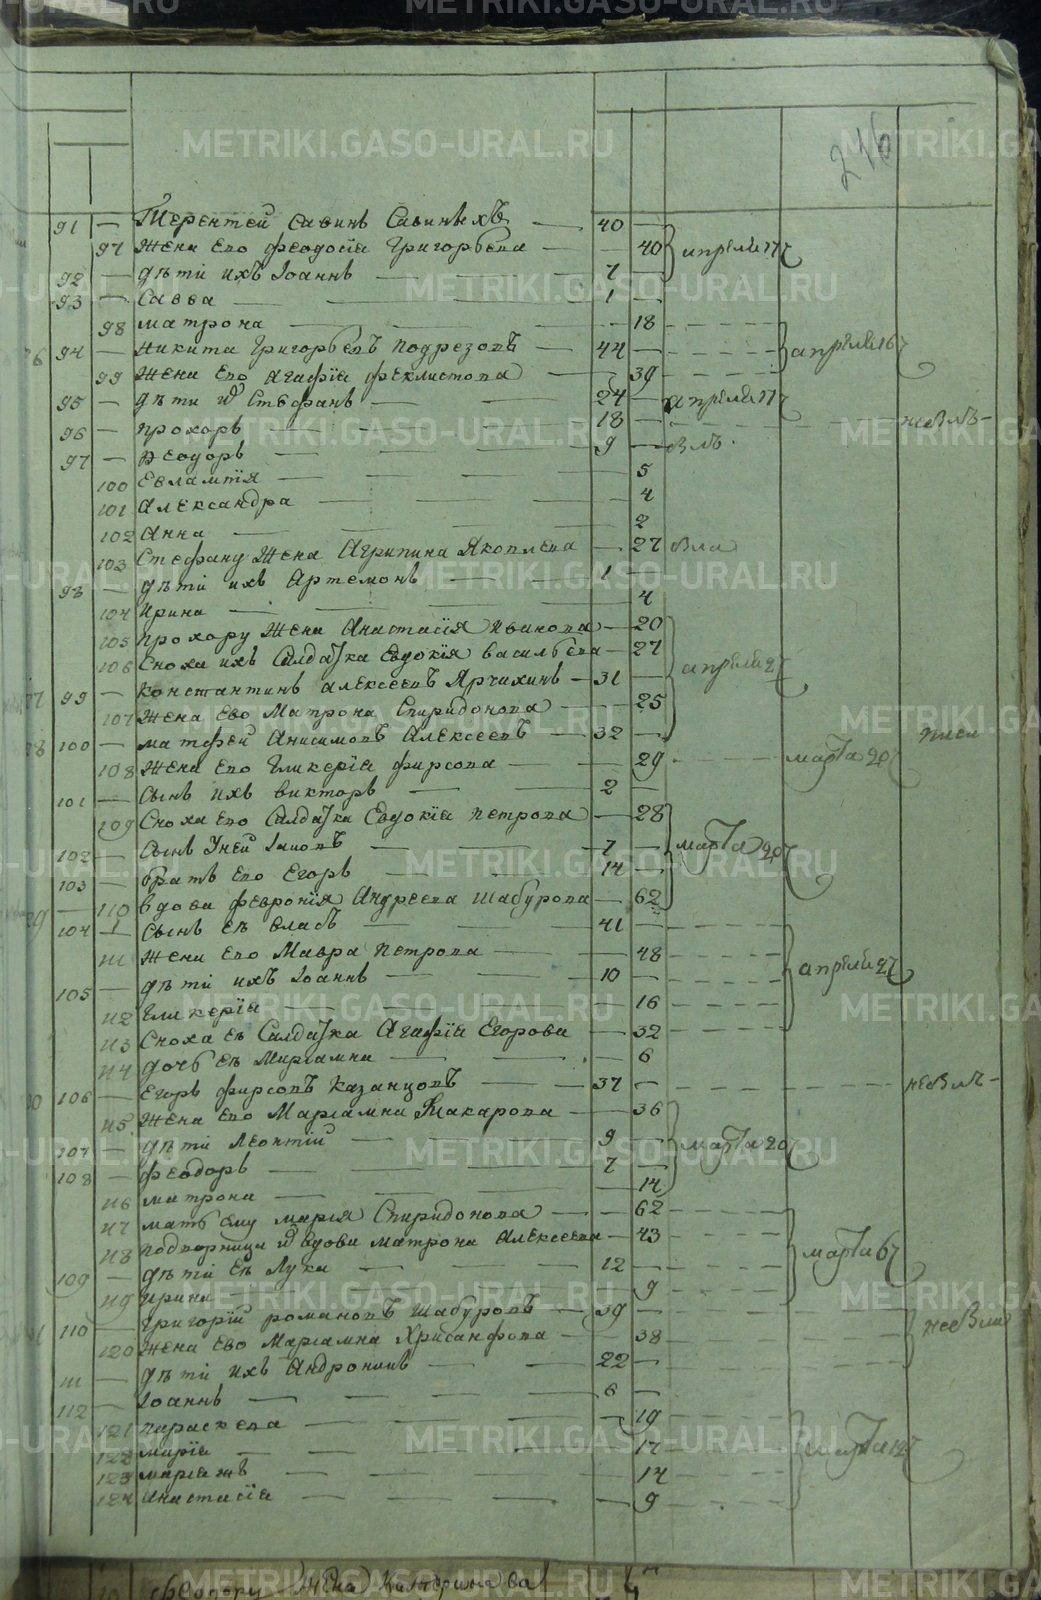 216
91 — Терентей Савинъ Савиныхъ — 40 —
97 жена его Феодосїя Григорьева — 40 апреля 17
92 — дѣти ихъ Иоаннъ — 7 —
93 — Савва — 1 —
98 матрона — 18
94 — Никита Григорьевъ Подрезовъ — 44 — апреля 16
99 жена его Агафїя Феклистова — 39
95 — дѣти Стефанъ — 24 — апреля 17
96 — Прохоръ — 18 — небылъ
97 — Феодоръ — 9 — былъ
100 Евлампїя — 5
101 Александра — 4
102 Анна — 2
103 Стефану жена Агрипина Яковлева — 27 была
98 — дѣти ихъ Артемонъ — 1 —
104 Ирина — 4
105 Прохору жена Анастасїя Иванова — 20
106 Сноха ихъ Салдатка Евдокїя Васильева — 27 апреля 27
99 — Константинъ Алексеевъ Ярчихинъ — 31 —
107 жена ево Матрона Спиридонова — 25
100 — матфей Анисимовъ Алексеевъ — 32 —
108 жена его Гликерїя Фирсова — 29 марта 20
101 — Сынъ ихъ Викторъ — 2 —
109 Сноха его Салдатка Евдокїя Петрова — 28
102 — Сынъ у ней — 7 — марта 20
103 — братъ его Егоръ — 14 —
110 вдова Феvронїя Андреева Шабурова — 62
104 Сынъ ея Власъ — 41 —
111 жена его Мавра Петрова — 48
105 — дѣти ихъ Иоаннъ — 10 — апреля 27
112 Гликерїя — 16
113 Сноха ея Салдатка Агафїя Егорова — 32
114 дочь ея Марїамна — 6
106 — Егоръ Фирсовъ Казанцовъ — 37 — небылъ
115 жена его Марїамна Макарова — 36
107 — дѣти Леонтїй — 9 — марта 20
108 — Феодоръ — 7 —
116 матрона — 14
117 мать ему марїя Спиридонова — 62
118 вдова матрона Алексеева — 43
109 — дѣти ея Лука — 12 — марта 6
119 Ирина — 9
110 — Григорїй романовъ Шабуровъ — 39 —
120 жена ево Марїамна Хрисанфова — 38
111 — дѣти ихъ Андроникъ — 22 —
112 — Иоаннъ — 6 —
121 параскева — 19
122 марїя — 17 марта
123 — 14
124 анастасїя — 9
Феодору жена Катерина
METRIKI.GASO-URAL.RU